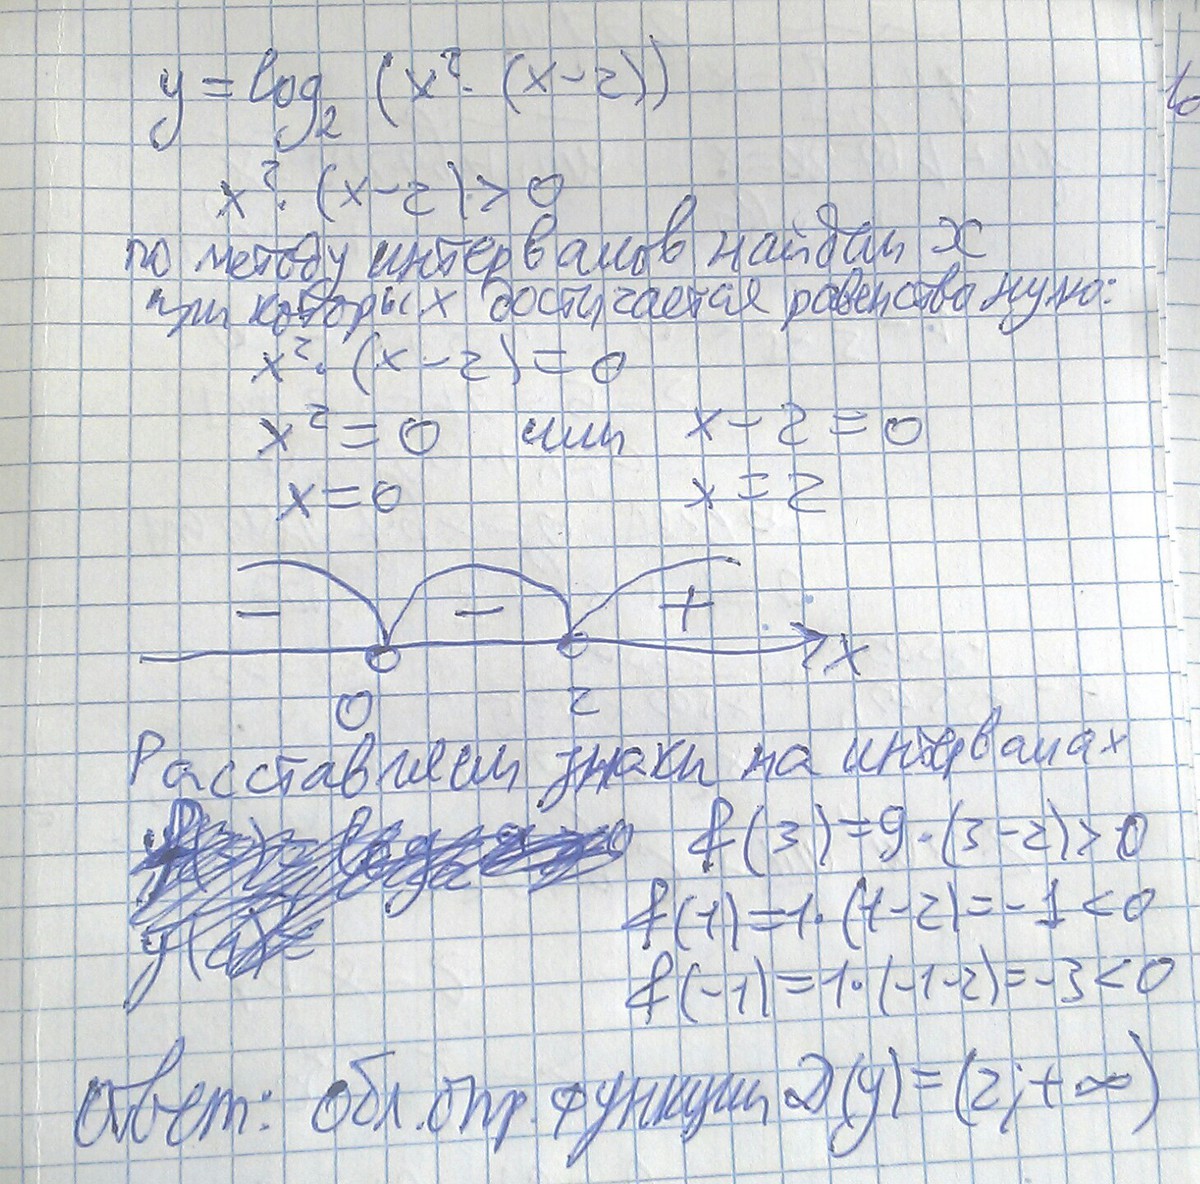 y = log₂ (x² · (x-2))
x² · (x-2) > 0
по методу интервалов найдем x
при которых достигается равенство нулю:
x² · (x-2) = 0
x² = 0 или x-2 = 0
x = 0 x = 2
- - +
x
0 2
Расставляем знаки на интервалах
f(3) = 9 · (3-2) > 0
f(1) = 1 · (1-2) = -1 < 0
f(-1) = 1 · (-1-2) = -3 < 0
Ответ: обл. опр. функции D(y) = (2; +∞)